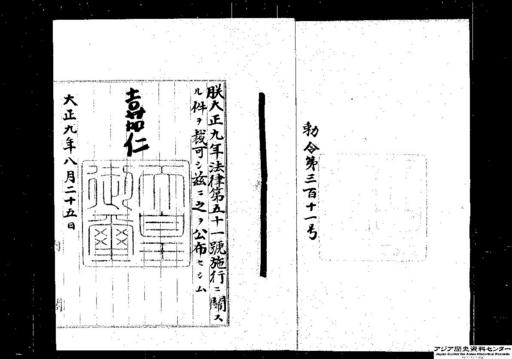 勅令第三百十一号
朕大正九年法律第五十一號施行ニ關ス
ル件ヲ裁可シ茲ニ之ヲ公布セシム
嘉仁
天皇御璽
大正九年八月二十五日
アジア歴史資料センター
Japan Center for Asian Historical Records